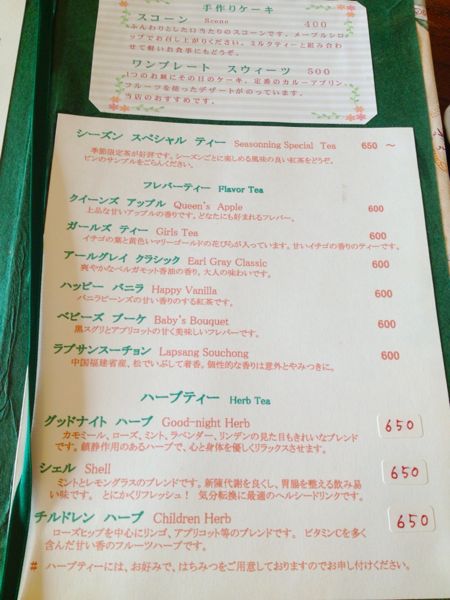 手作りケーキ
スコーン Scone 400
ふんわりとした口当たりのスコーンです。メープルシロ
ップでお召し上がりください。ミルクティーと組み合わ
せて軽いお食事にもどうぞ。
ワンプレート スウィーツ 500
1つのお皿にその日のケーキ、定番のカルーアプリン
フルーツを使ったデザートがのっています。
当店のおすすめです。
シーズン スペシャル ティー Seasonning Special Tea 650 ～
季節限定茶が好評です。シーズンごとに楽しめる風味の良い紅茶をどうぞ。
ビンのサンプルをごらんください。
フレバーティー Flavor Tea
クイーンズ アップル Queen's Apple 600
上品な甘いアップルの香りです。どなたにも好まれるフレバー。
ガールズ ティー Girls Tea 600
イチゴの葉と黄色いマリーゴールドの花びらが入っています。甘いイチゴの香りのティーです。
アールグレイ クラシック Earl Gray Classic 600
爽やかなベルガモット香油の香り。大人の味わいです。
ハッピー バニラ Happy Vanilla 600
バニラビーンズの甘い香りのする紅茶です。
ベビーズ ブーケ Baby's Bouquet 600
黒スグリとアプリコットの甘く美味しいフレバーです。
ラプサンスーチョン Lapsang Souchong 600
中国福建省産、松でいぶして着香。個性的な香りは意外とやみつきに。
ハーブティー Herb Tea
グッドナイト ハーブ Good-night Herb 650
カモミール、ローズ、ミント、ラベンダー、リンデンの見た目もきれいなブレンド
です。鎮静作用のあるハーブで、心と身体を優しくリラックスさせます。
シェル Shell 650
ミントとレモングラスのブレンドです。新陳代謝を良くし、胃腸を整える飲み易
い味です。 とにかくリフレッシュ！ 気分転換に最適のヘルシードリンクです。
チルドレン ハーブ Children Herb 650
ローズヒップを中心にリンゴ、アプリコット等のブレンドです。 ビタミンCを多く
含んだ甘い香のフルーツハーブです。
# ハーブティーには、お好みで、はちみつをご用意しておりますのでお申し付けください。